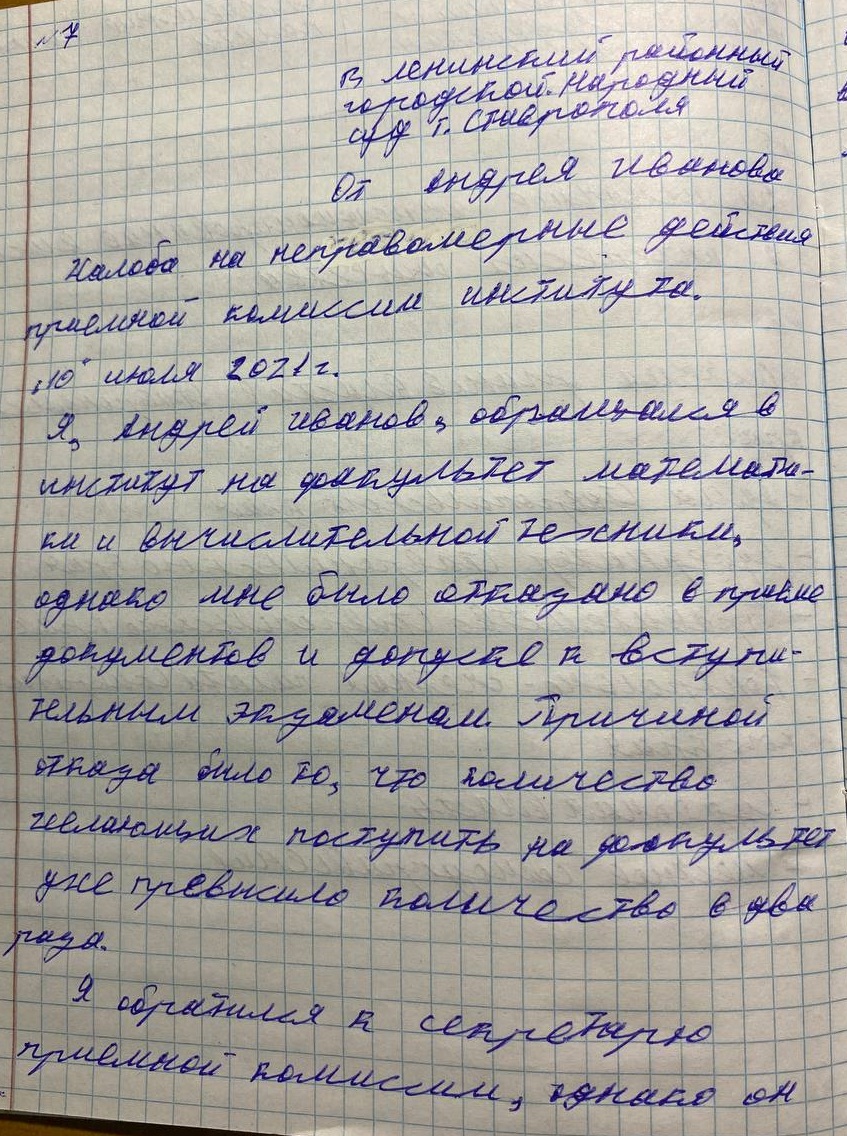 №7
В ленинский районный
городской. Народный
суд г. Ставрополя
От Андрея Иванова
Жалоба на неправомерные действия
приемной комиссии института.
"10" июля 2021 г.
Я, Андрей Иванов, обращался в
институт на факультет математи-
ки и вычислительной техники,
однако мне было отказано в приеме
документов и допуске к вступи-
тельным экзаменам. Причиной
отказа было то, что количество
желающих поступить на факультет
уже превысило количество в два
раза.
Я обратился к секретарю
приемной комиссии, однако он